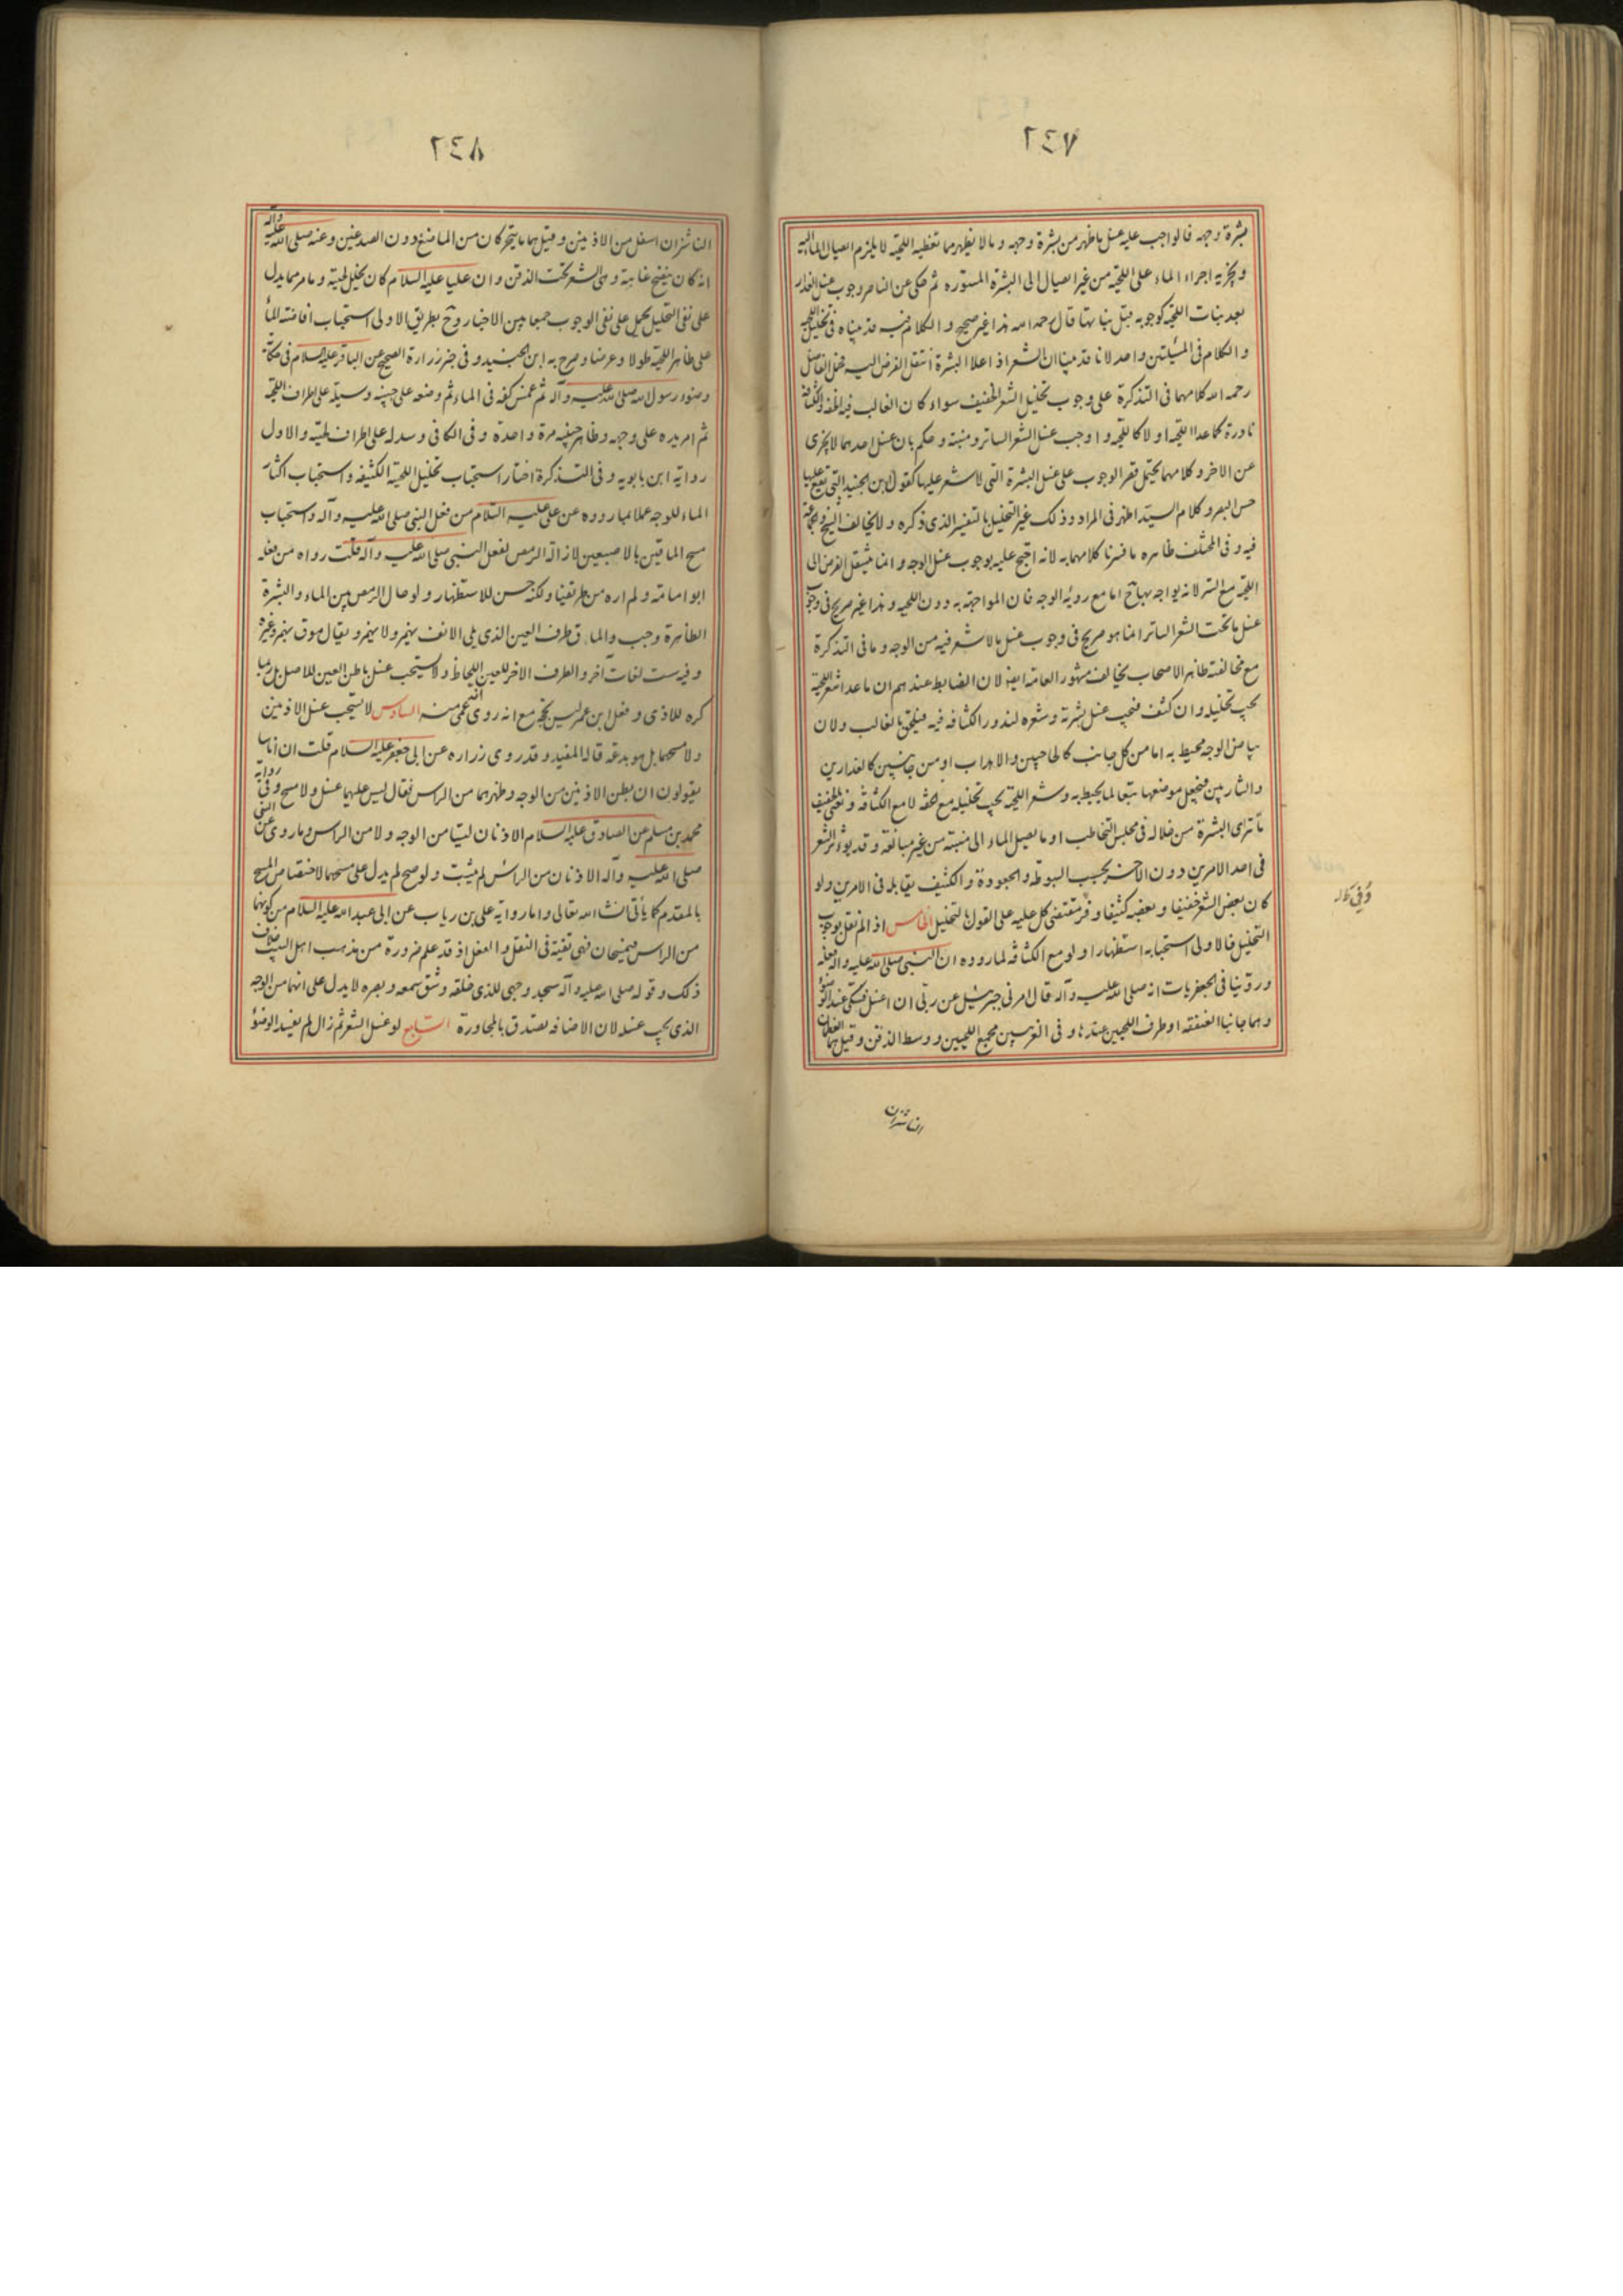 ٢٤٧
بشرة وجهه فالواجب عليه غسل ما ظهر من بشرة وجهه وما لا يظهر مما تغطيه اللحية لا يلزم ايصال الماء اليه
ويجزيه اجراء الماء على اللحية من غير ايصال الى البشرة المستورة ثم حكى عن الناصر وجوب غسل العذار
بعد نبات اللحية كوجوبه قبل نباتها قال رحمه الله هذا غير صحيح والكلام فيه قد بيناه في تخليل اللحية
والكلام في المسئلتين واحد لانا قد بينا ان الشعر اذا علا البشرة انتقل الفرض اليه فحمل الفاضل
رحمه الله كلامهما في التذكرة على وجوب تخليل الشعر الخفيف سواء كان الغالب فيه الخفة والكثافة
نادرة كما عدا اللحية او لا كاللحية واوجب غسل الشعر الساتر ومنبته وحكم بان غسل احدهما لا يجزى
عن الاخر وكلامهما يحتمل قصر الوجوب على غسل البشرة التى لا شعر عليها كقول ابن الجنيد التى تقع عليها
حس البصر وكلام السيد اظهر في المراد وذلك غير التخليل بالتفسير الذى ذكره ولا يخالف الشيخ والجماعة
فيه وفي المختلف ظاهره ما فسرنا كلامهما به لانه احتج عليه بوجوب غسل الوجه وانما ينتقل الفرض الى
اللحية مع الستر لانه يواجه بها ح اما مع رؤية الوجه فان المواجهة به دون اللحية وهذا غير صريح في وجوب
غسل ما تحت الشعر الساتر انما هو صريح في وجوب غسل ما لا شعر فيه من الوجه وما في التذكرة
مع مخالفته ظاهر الاصحاب يخالف مشهور العامة ايضا لان الضابط عندهم ان ما عدا شعر اللحية
يجب تخليله وان كثف فيجب غسل بشرته وشعره لندور الكثافة فيه فيلحق بالغالب ولان
بياض الوجه محيط به اما من كل جانب كالحاجبين والاهداب او من جانبين كالعذارين
والشاربين فيجعل موضعها تبعا لما يحيط به وشعر اللحية يجب تخليله مع الخفة لا مع الكثافة ونعنى بالخفيف
ما تتراى البشرة من خلاله في مجلس التخاطب او ما يصل الماء الى منبته من غير مبالغة وقد يؤثر الشعر
في احد الامرين دون الاخر بحسب السبوطة والجعودة والكثيف يقابله في الامرين ولو
كان بعض الشعر خفيفا وبعضه كثيفا وفر مقتضى كل عليه على القول بالتخليل الخامس اذا لم نقل بوجوب
التخليل فالاولى استحبابه استظهارا ولو مع الكثافة لما رووه ان النبى صلى الله عليه واله فعله
وروينا في الجعفريات انه صلى الله عليه وآله قال امرنى جبرئيل عن ربى ان اغسل فنيكى عند الوضوء
وهما جانبا العنفقة او طرف اللحيين عندها وفي الغريبين مجمع اللحيين ووسط الذقن وقيل هما العظمان
وُفِّي كل
الناشزان
٢٤٨
الناشزان اسفل من الاذنين وقيل هما ما يتحركان من الماضغ دون الصدغين وعنه صلى الله عليه وآله
انه كان ينضح غابته وهى الشعر تحت الذقن وان عليا عليه السلام كان يخلل لحيته وما مر مما يدل
على نفى التخليل يحمل على نفى الوجوب جمعا بين الاخبار وح بطريق الاولى استحباب افاضته الماء
على ظاهر اللحية طولا وعرضا وصرح به ابن الجنيد وفي خبر زرارة الصحيح عن الباقر عليه السلام في حكاية
وضوء رسول الله صلى الله عليه وآله ثم غمس كفه في الماء ثم وضعه على جبينه وسيله على اطراف اللحية
ثم امر يده على وجهه وظاهر جبينه مرة واحدة وفي الكافى وسدله على اطراف لحيته والاول
رواية ابن بابويه وفي التذكرة اختار استحباب تخليل اللحية الكثيفة واستحباب اكثار
الماء للوجه عملا بما رووه عن على عليه السلام من فعل النبى صلى الله عليه وآله واستحباب
مسح الماقين بالاصبعين لازالة الرمص لفعل النبى صلى الله عليه وآله قلت رواه من فعله
ابو امامة ولم اره من طريقنا ولكنه حسن للاستظهار ولو حال الرمص بين الماء والبشرة
الظاهرة وجب والماق طرف العين الذى يلى الانف بهمز ولا يهمز ويقال موق بهمز وغيره
وفيه ست لغات اخر والطرف الاخر للعين اللحاظ ولا يستحب غسل باطن العين للاصل بل ربما
كره للاذى وفعل ابن عمر ليس بحجة مع انه روى انه عمى منه السادس لا يستحب غسل الاذنين
ولا مسحهما بل هو بدعة قاله المفيد وقد روى زرارة عن ابى جعفر عليه السلام قلت ان اناسا
يقولون ان بطن الاذنين من الوجه وظهرهما من الراس فقال ليس عليهما غسل ولا مسح وفي رواية
محمد بن مسلم عن الصادق عليه السلام الاذنان ليستا من الوجه ولا من الراس وما روى عن النبى
صلى الله عليه وآله الاذنان من الراس لم يثبت ولو صح لم يدل على مسحهما لاختصاص المسح
بالمقدم كما يأتى انشاء الله تعالى واما رواية على بن رياب عن ابى عبد الله عليه السلام من كونهما
من الراس فيمسحان فهى تقية في النقل والفعل اذ قد علم ضرورة من مذهب اهل البيت خلاف
ذلك وقوله صلى الله عليه وآله سجد وجهى للذى خلقه وشق سمعه وبصره لا يدل على انهما من الوجه
الذى يجب غسله لان الاضافة تصدق بالمجاورة السابع لو غسل الشعر ثم زال لم يعد الوضوء